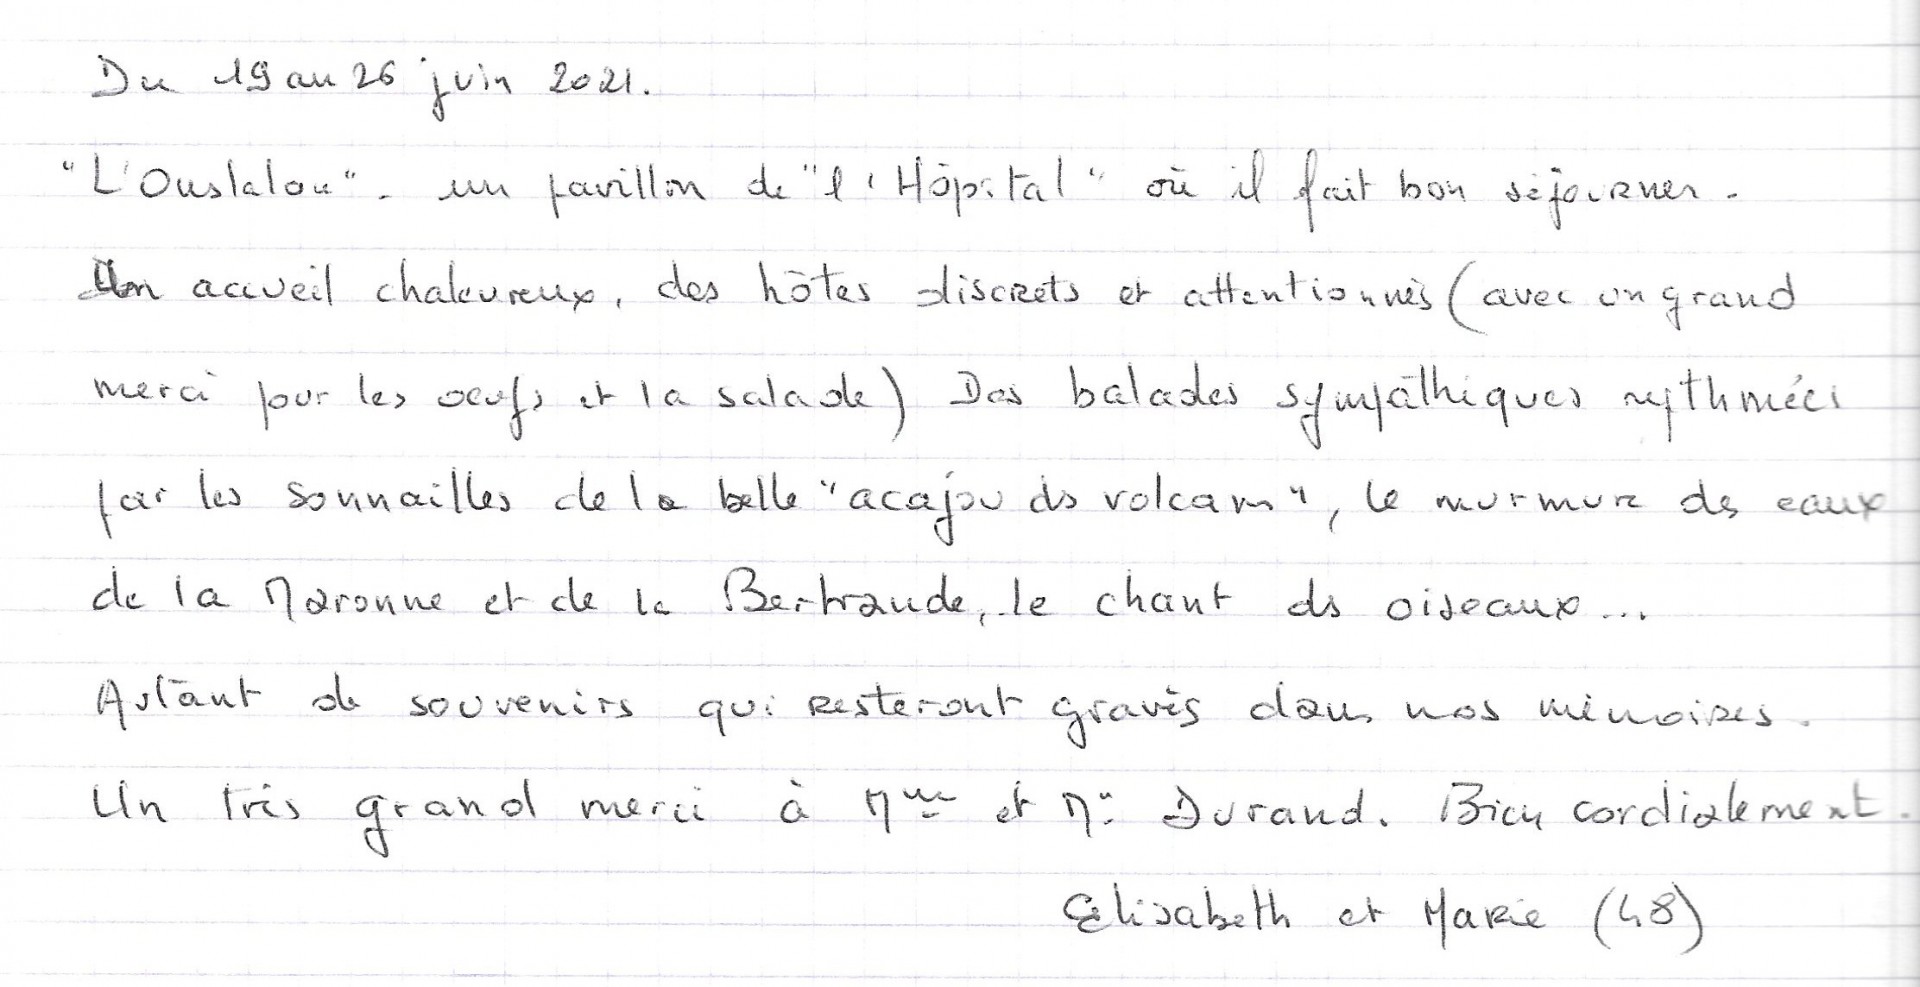 Du 19 au 26 juin 2021.
"L'Oustalou". un pavillon de "l'Hôpital" où il fait bon séjourner.
Un accueil chaleureux, des hôtes discrets et attentionnés (avec un grand
merci pour les oeufs et la salade) Des balades sympathiques rythmées
par les sonnailles de la belle "acajou des volcans", le murmure des eaux
de la Maronne et de la Bertrande, le chant des oiseaux...
Autant de souvenirs qui resteront gravés dans nos mémoires.
Un très grand merci à Mme et Mr Durand. Bien cordialement.
Elisabeth et Marie (48)